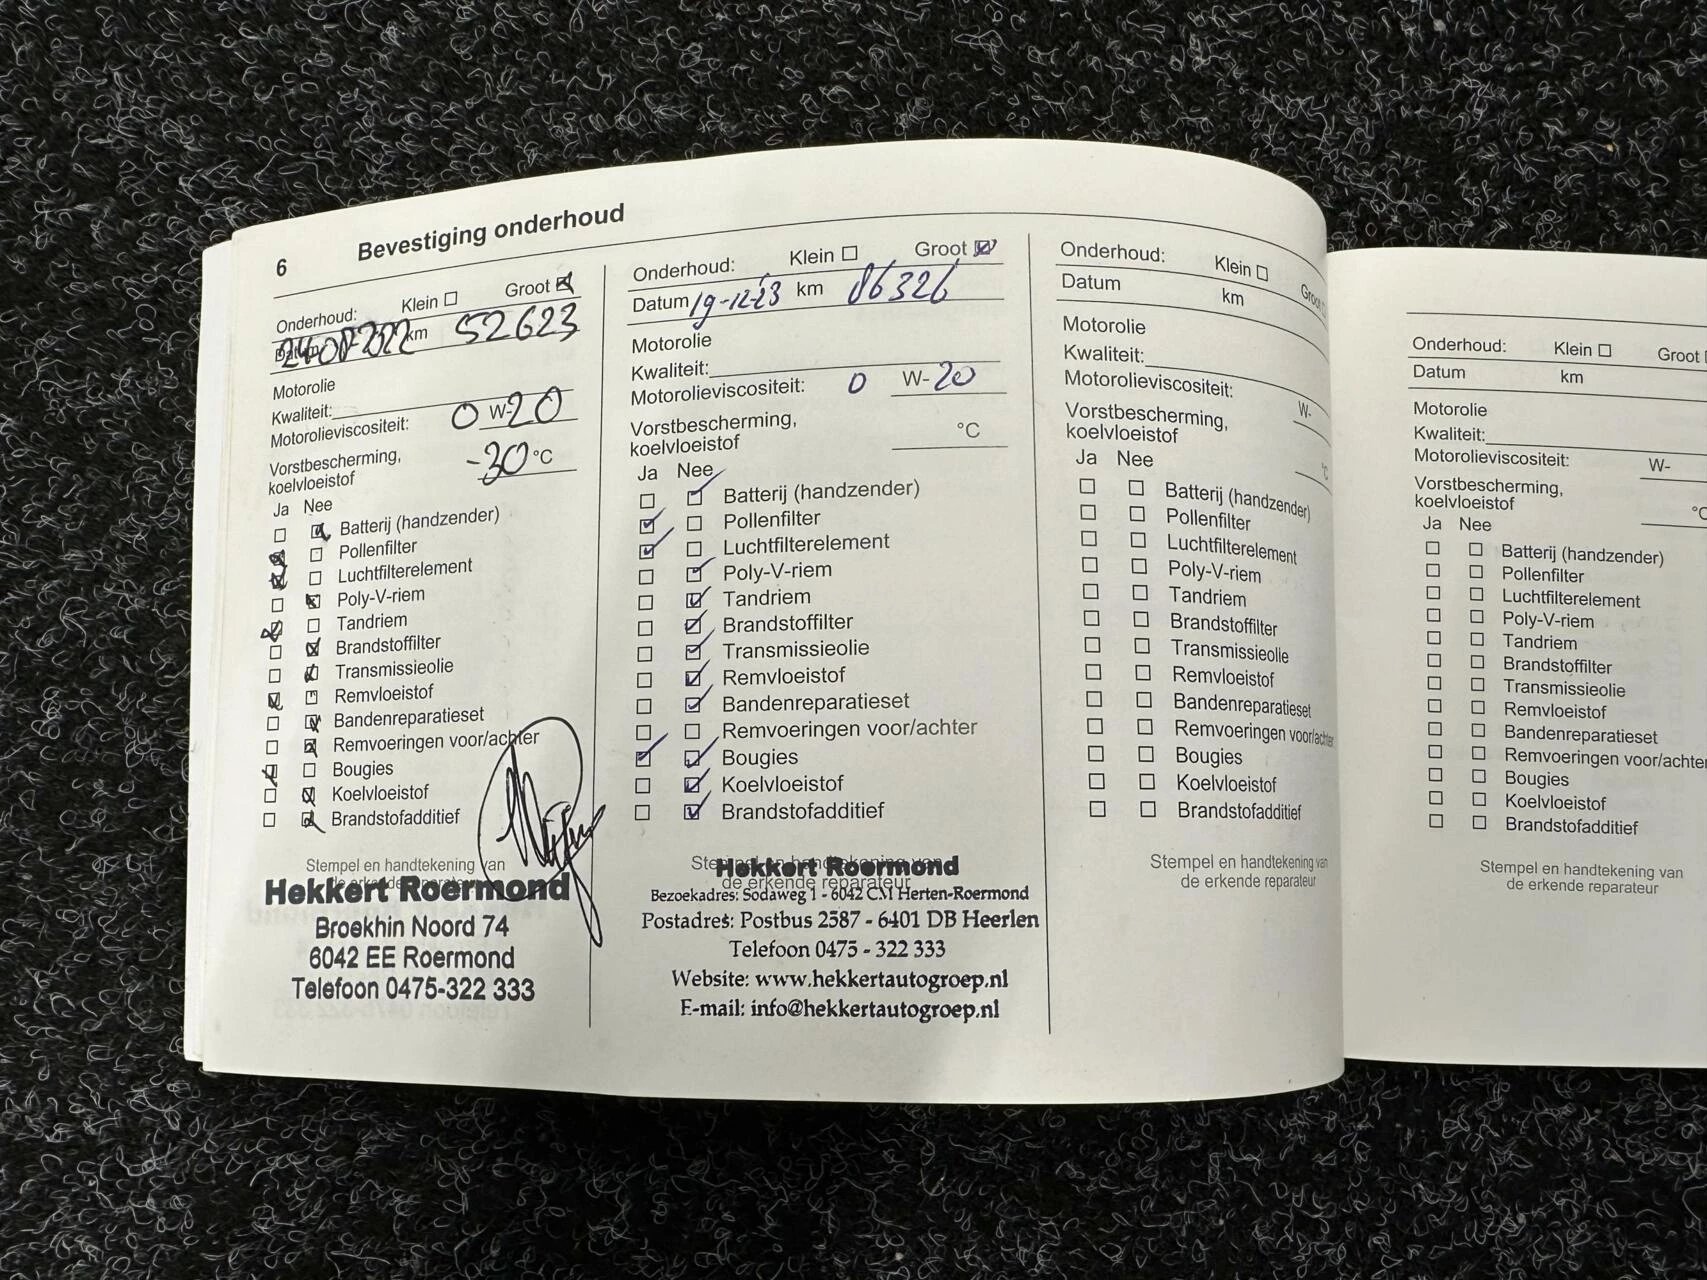 6
Bevestiging onderhoud
Onderhoud: Klein ☐ Groot ☒
Datum km 52623
Motorolie
Kwaliteit:
Motorolieviscositeit: 0 W-20
Vorstbescherming,
koelvloeistof -30 °C
Ja Nee
☐ ☒ Batterij (handzender)
☒ ☐ Pollenfilter
☒ ☐ Luchtfilterelement
☐ ☒ Poly-V-riem
☒ ☐ Tandriem
☐ ☒ Brandstoffilter
☐ ☒ Transmissieolie
☒ ☐ Remvloeistof
☐ ☒ Bandenreparatieset
☐ ☒ Remvoeringen voor/achter
☒ ☐ Bougies
☐ ☒ Koelvloeistof
☐ ☒ Brandstofadditief
Stempel en handtekening van
de erkende reparateur
Hekkert Roermond
Broekhin Noord 74
6042 EE Roermond
Telefoon 0475-322 333
Onderhoud: Klein ☐ Groot ☑
Datum 19-12-23 km 86326
Motorolie
Kwaliteit:
Motorolieviscositeit: 0 W-20
Vorstbescherming,
koelvloeistof °C
Ja Nee
☐ ☑ Batterij (handzender)
☑ ☐ Pollenfilter
☑ ☐ Luchtfilterelement
☐ ☑ Poly-V-riem
☐ ☑ Tandriem
☐ ☑ Brandstoffilter
☐ ☑ Transmissieolie
☐ ☑ Remvloeistof
☐ ☑ Bandenreparatieset
☐ ☐ Remvoeringen voor/achter
☑ ☑ Bougies
☐ ☑ Koelvloeistof
☐ ☑ Brandstofadditief
Stempel en handtekening van
de erkende reparateur
Hekkert Roermond
Bezoekadres: Sodaweg 1 - 6042 CM Herten-Roermond
Postadres: Postbus 2587 - 6401 DB Heerlen
Telefoon 0475 - 322 333
Website: www.hekkertautogroep.nl
E-mail: info@hekkertautogroep.nl
Onderhoud: Klein ☐ Groot ☐
Datum km
Motorolie
Kwaliteit:
Motorolieviscositeit: W-
Vorstbescherming,
koelvloeistof °C
Ja Nee
☐ ☐ Batterij (handzender)
☐ ☐ Pollenfilter
☐ ☐ Luchtfilterelement
☐ ☐ Poly-V-riem
☐ ☐ Tandriem
☐ ☐ Brandstoffilter
☐ ☐ Transmissieolie
☐ ☐ Remvloeistof
☐ ☐ Bandenreparatieset
☐ ☐ Remvoeringen voor/achter
☐ ☐ Bougies
☐ ☐ Koelvloeistof
☐ ☐ Brandstofadditief
Stempel en handtekening van
de erkende reparateur
Onderhoud: Klein ☐ Groot
Datum km
Motorolie
Kwaliteit:
Motorolieviscositeit: W-
Vorstbescherming,
koelvloeistof °C
Ja Nee
☐ ☐ Batterij (handzender)
☐ ☐ Pollenfilter
☐ ☐ Luchtfilterelement
☐ ☐ Poly-V-riem
☐ ☐ Tandriem
☐ ☐ Brandstoffilter
☐ ☐ Transmissieolie
☐ ☐ Remvloeistof
☐ ☐ Bandenreparatieset
☐ ☐ Remvoeringen voor/achter
☐ ☐ Bougies
☐ ☐ Koelvloeistof
☐ ☐ Brandstofadditief
Stempel en handtekening van
de erkende reparateur